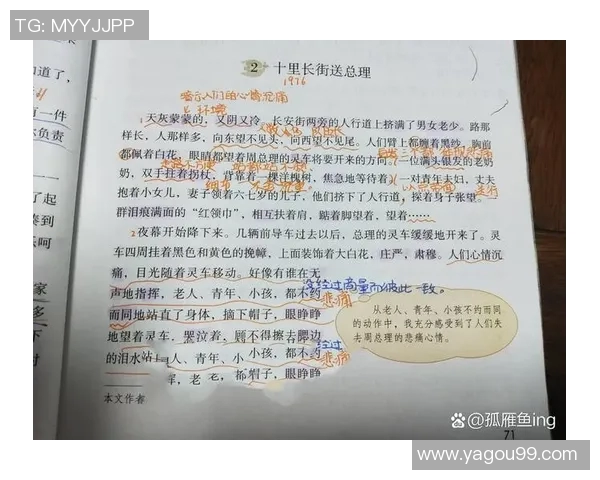 TG: MYYJJPP
2 十里长街送总理
1976
暗示人们的心情沉痛
环境
1天灰蒙蒙的，又阴又冷。长安街两旁的人行道上挤满了男女老少。路那
样长，人那样多，向东望不见头，向西望不见尾。人们臂上都缠着黑纱，胸前
都佩着白花，眼睛都望着周总理的灵车将要开来的方向。一位满头银发的老奶
奶，双手拄着拐杖，背靠着一棵洋槐树，焦急地等待着。一对青年夫妇，丈夫
抱着小女儿，妻子领着六七岁的儿子，他们挤下了人行道，探着身子张望。
群泪痕满面的“红领巾”，相互扶着肩，踮着脚望着，望着……
2夜幕开始降下来。几辆前导车过去以后，总理的灵车缓缓地开来了。灵
车四周挂着黑色和黄色的挽幛，上面装饰着大白花，庄严，肃穆。人们心情沉
痛，目光随着灵车移动。好像有谁在无
没经过商量而彼此一致。
声地指挥，老人、青年、小孩，都不约
悲痛
而同地站直了身体，摘下帽子，眼睁睁
地望着灵车，哭泣着，顾不得擦去腮边
的泪水
人、青年、小孩，都不约
经过
悲痛
帽子，眼睁睁
从老人、青年、小孩不约而同
的动作中，我充分感受到了人们失
去周总理的悲痛心情。
本文作者
道了，
有一件
负责
了起
71
百家号/孤雁鱼ing
www.yagou99.com